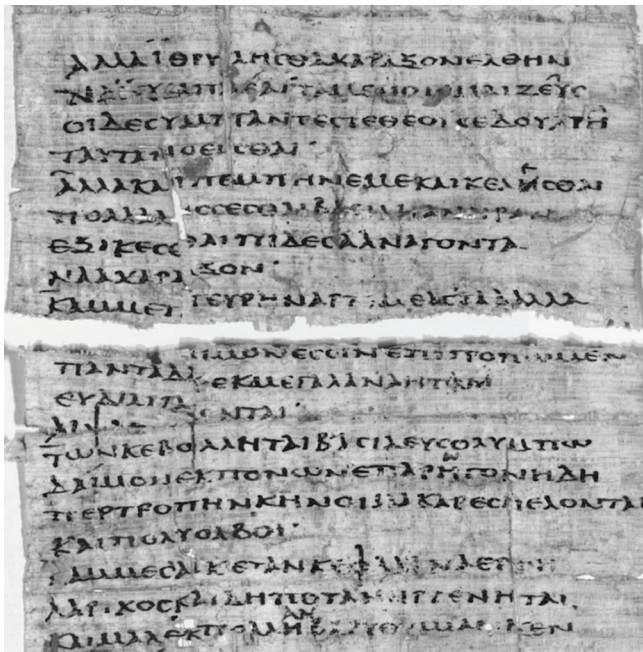 ΑΛΛΑΪΘΡΥΛΗϹΘΑΧΑΡΑΞΟΝΕΛΘΗΝ
ΝΑΪϹΥΝΠΛΕΑΙΤΑΜΕΝΟΙΟΜΑΙΖΕΥϹ
ΟΙΔΕϹΥΜΠΑΝΤΕϹΤΕΘΕΟΙϹΕΔΟΥΧΡΗ
ΤΑΥΤΑΝΟΕΙϹΘΑΙ·
ΑΛΛΑΚΑΙΠΕΜΠΗΝΕΜΕΚΑΙΚΕΛΗϹΘΑΙ
ΠΟΛΛΑΛΙϹϹΕϹΘΑΙΒΑϹΙΛΗΑΝΗΡΑΝ
ΕΞΙΚΕϹΘΑΙΤΥΙΔΕϹΑΑΝΑΓΟΝΤΑ
ΝΑΑΧΑΡΑΞΟΝ·
ΚΑΜΜΕΠΕΥΡΗΝΑΡΤΕΜΕΑϹΤΑΔΑΛΛΑ
ΠΑΝΤΑΔΑΙΜΟΝΕϹϹΙΝΕΠΙΤΡΟΠΩΜΕΝ
ΕΥΔΙΑΙΓΑΡΕΚΜΕΓΑΛΑΝΑΗΤΑΝ
ΑΙΨΑΠΕΛΟΝΤΑΙ·
ΤΩΝΚΕΒΟΛΛΗΤΑΙΒΑϹΙΛΕΥϹΟΛΥΜΠΩ
ΔΑΙΜΟΝΕΚΠΟΝΩΝΕΠΑΡΗΓΟΝΗΔΗ
ΠΕΡΤΡΟΠΗΝΚΗΝΟΙΜΑΚΑΡΕϹΠΕΛΟΝΤΑΙ
ΚΑΙΠΟΛΥΟΛΒΟΙ·
ΚΑΜΜΕϹΑΙΚΕΤΑΝΚΕΦΑΛΑΝΑΕΡΡΗ
ΛΑΡΙΧΟϹΚΑΙΔΗΠΟΤΑΝΗΡΓΕΝΗΤΑΙ
ΚΑΙΜΑΛΕΚΠΟΛΛΑΝΒΑΡΥΘΥΜΙΑΝΚΕΝ